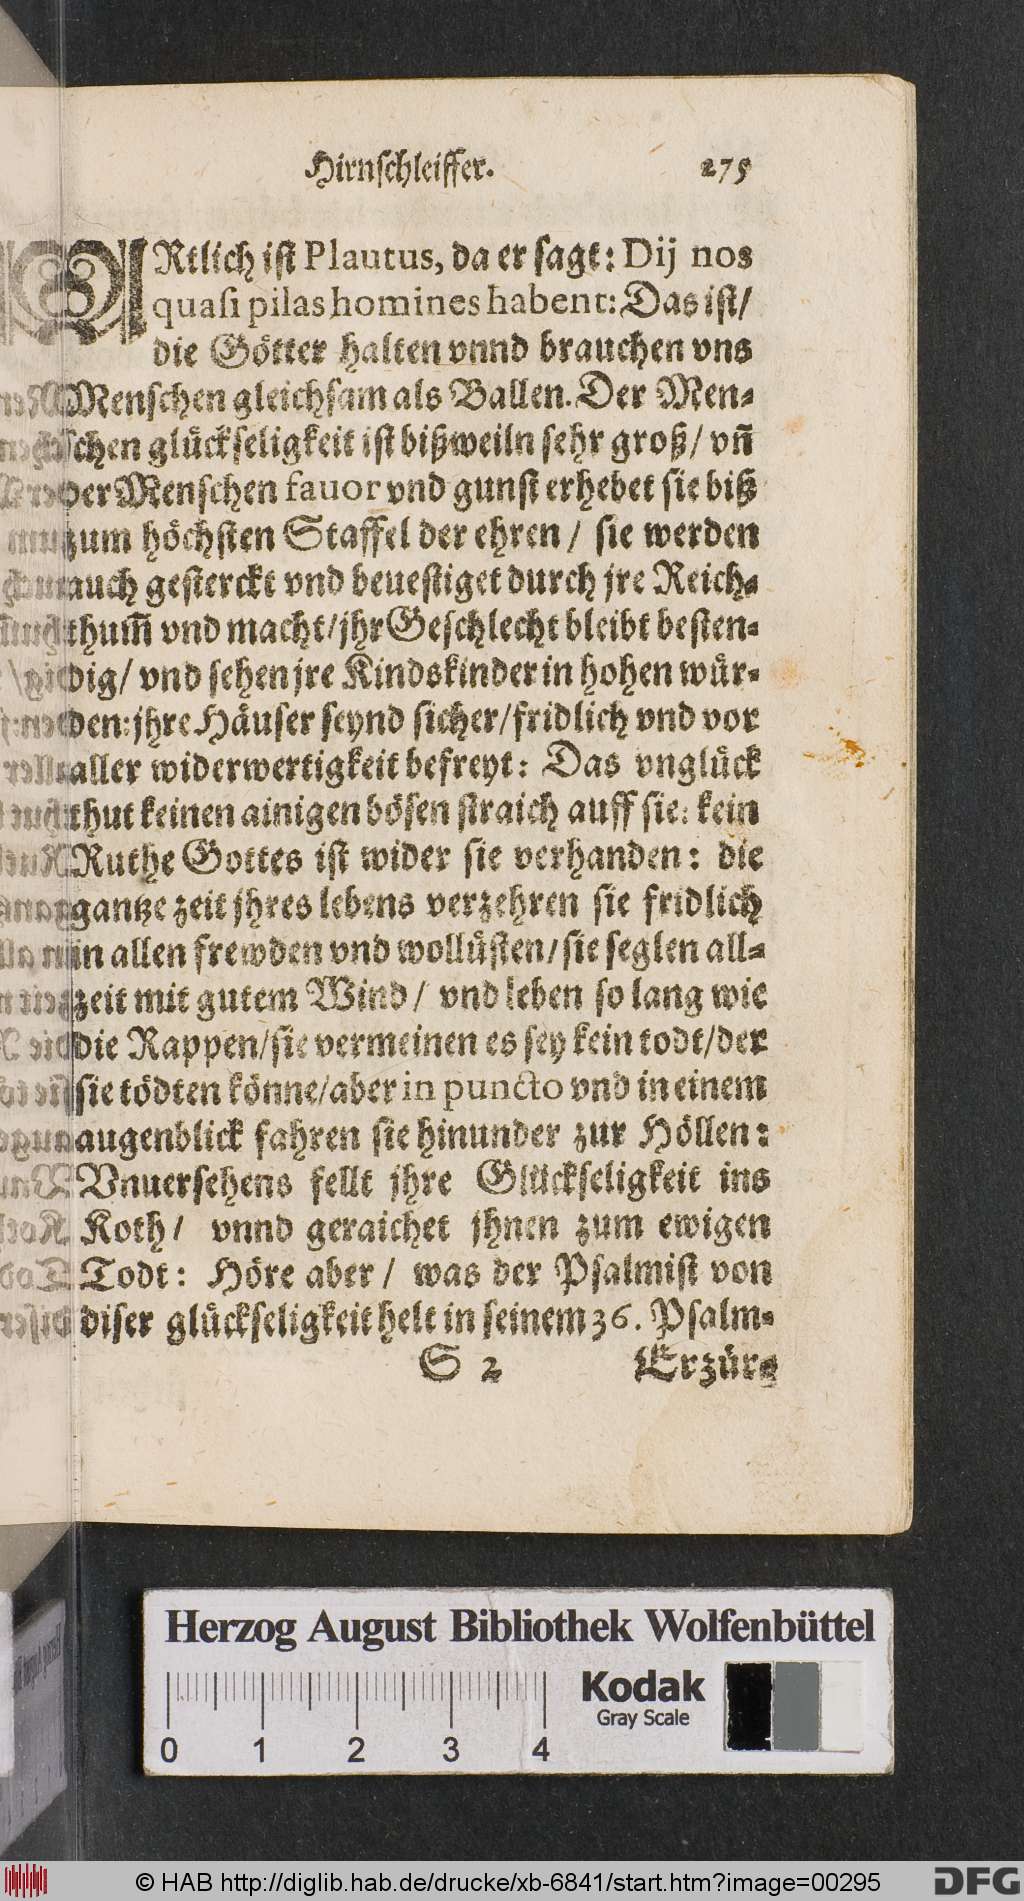 Hirnschleiffer. 275
ARtlich ist Plautus, da er sagt: Dij nos
quasi pilas homines habent: Das ist/
die Götter halten vnnd brauchen vns
Menschen gleichsam als Ballen. Der Men-
schen glückseligkeit ist bißweiln sehr groß/ vn̄
der Menschen fauor vnd gunst erhebet sie biß
zum höchsten Staffel der ehren / sie werden
auch gesterckt vnd beuestiget durch jre Reich-
thum̄ vnd macht/jhr Geschlecht bleibt besten-
dig/ vnd sehen jre Kindskinder in hohen wür-
den: jhre Häuser seynd sicher/fridlich vnd vor
aller widerwertigkeit befreyt: Das vnglück
thut keinen ainigen bösen straich auff sie: kein
Ruthe Gottes ist wider sie verhanden: die
gantze zeit jhres lebens verzehren sie fridlich
in allen frewden vnd wollüsten/sie seglen all-
zeit mit gutem Wind/ vnd leben so lang wie
die Rappen/sie vermeinen es sey kein todt/der
sie tödten könne/aber in puncto vnd in einem
augenblick fahren sie hinunder zur Höllen:
Vnuersehens fellt jhre Glückseligkeit ins
Koth/ vnnd geraichet jhnen zum ewigen
Todt: Höre aber/ was der Psalmist von
diser glückseligkeit helt in seinem 36. Psalm-
S 2 Erzür-
Herzog August Bibliothek Wolfenbüttel
Kodak
Gray Scale
0 1 2 3 4
© HAB http://diglib.hab.de/drucke/xb-6841/start.htm?image=00295
DFG